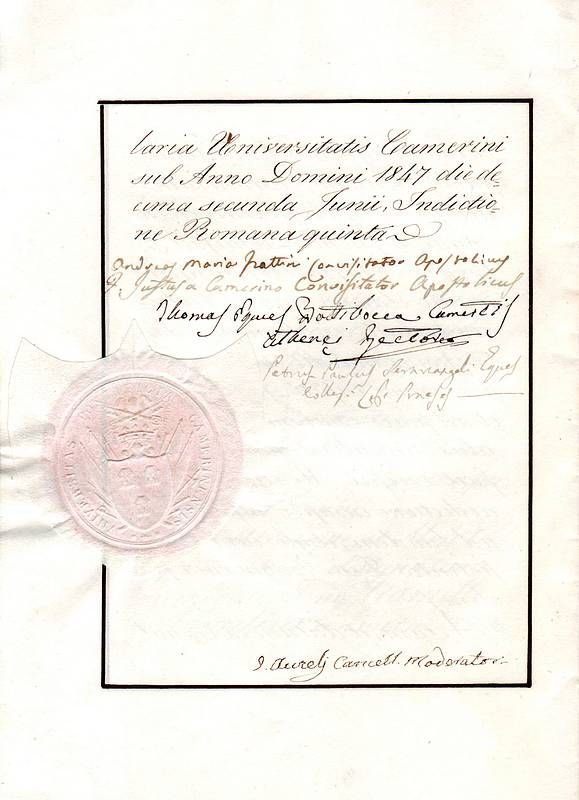 laria Universitatis Camerini
sub Anno Domini 1847 die de=
cima secunda Junii, Indictio=
ne Romana quinta
Andreas Maria Frattini Convisitator Apostolicus
F. Justus a Camerino Convisitator Apostolicus
Thomas Eques Camertis
Athenei Rector
Petrus Paulus Eques
Praeses
UNIVERSITAS CAMERINENSIS
J. Aurelj Cancell. Moderator